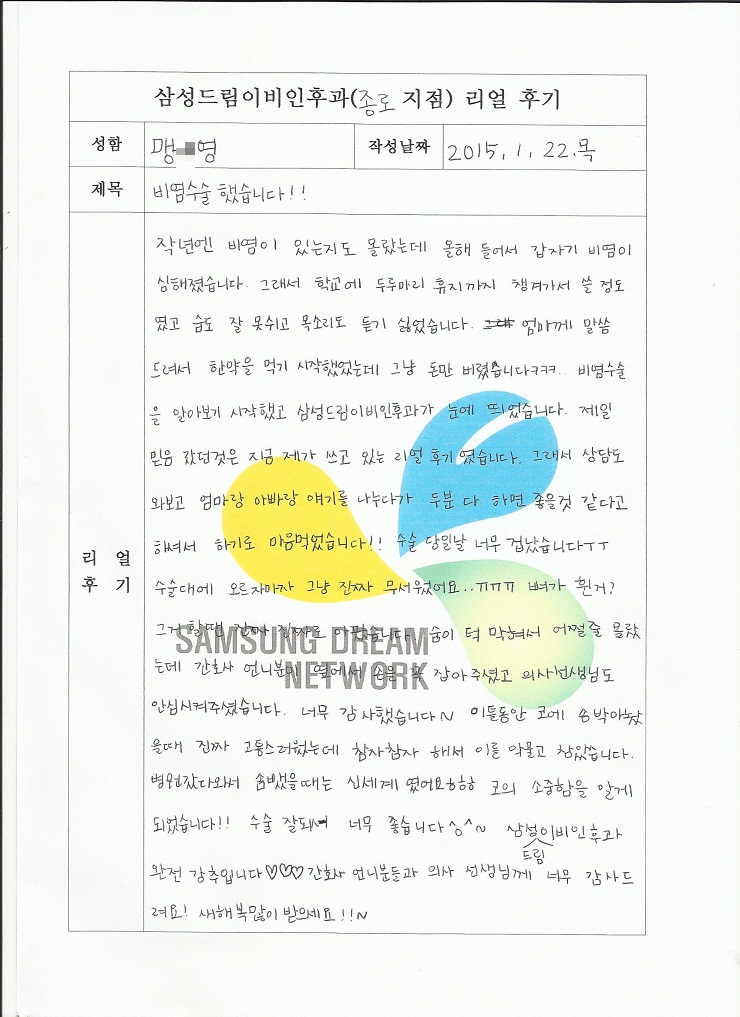 삼성드림이비인후과(종로 지점) 리얼 후기
성함 맹 영 작성날짜 2015. 1. 22. 목
제목 비염수술 했습니다!!
작년엔 비염이 있는지도 몰랐는데 올해 들어서 갑자기 비염이
심해졌습니다. 그래서 학교에 두루마리 휴지까지 챙겨가서 쓸 정도
였고 숨도 잘 못쉬고 목소리도 듣기 싫었습니다. 엄마께 말씀
드려서 한약을 먹기 시작했었는데 그냥 돈만 버렸습니다ㅋㅋㅋ.. 비염수술
을 알아보기 시작했고 삼성드림이비인후과가 눈에 띄었습니다. 제일
믿음 갔던것은 지금 제가 쓰고 있는 리얼 후기 였습니다. 그래서 상담도
와보고 엄마랑 아빠랑 얘기를 나누다가 두분 다 하면 좋을것 같다고
해셔서 하기로 마음먹었습니다!! 수술 당일날 너무 겁났습니다ㅜㅜ
수술대에 오르자마자 그냥 진짜 무서웠어요..ㅠㅠㅠ 뼈가 휜거?
리 얼
후 기
그거 할땐 진짜 진짜로 아팠습니다. 숨이 턱 막혀서 어쩔줄 몰랐
SAMSUNG DREAM
NETWORK
는데 간호사 언니분이 옆에서 손을 꼭 잡아주셨고 의사선생님도
안심시켜주셨습니다. 너무 감사했습니다~ 이틀동안 코에 솜박아놨
을때 진짜 고통스러웠는데 참자참자 해서 이를 악물고 참았습니다.
병원갔다와서 솜뺐을때는 신세계 였어요ㅎㅎㅎ 코의 소중함을 알게
되었습니다!! 수술 잘되서 너무 좋습니다^o^~ 삼성드림이비인후과
완전 강추입니다♡♡♡ 간호사 언니분들과 의사 선생님께 너무 감사드
려요! 새해복많이 받으세요!!~